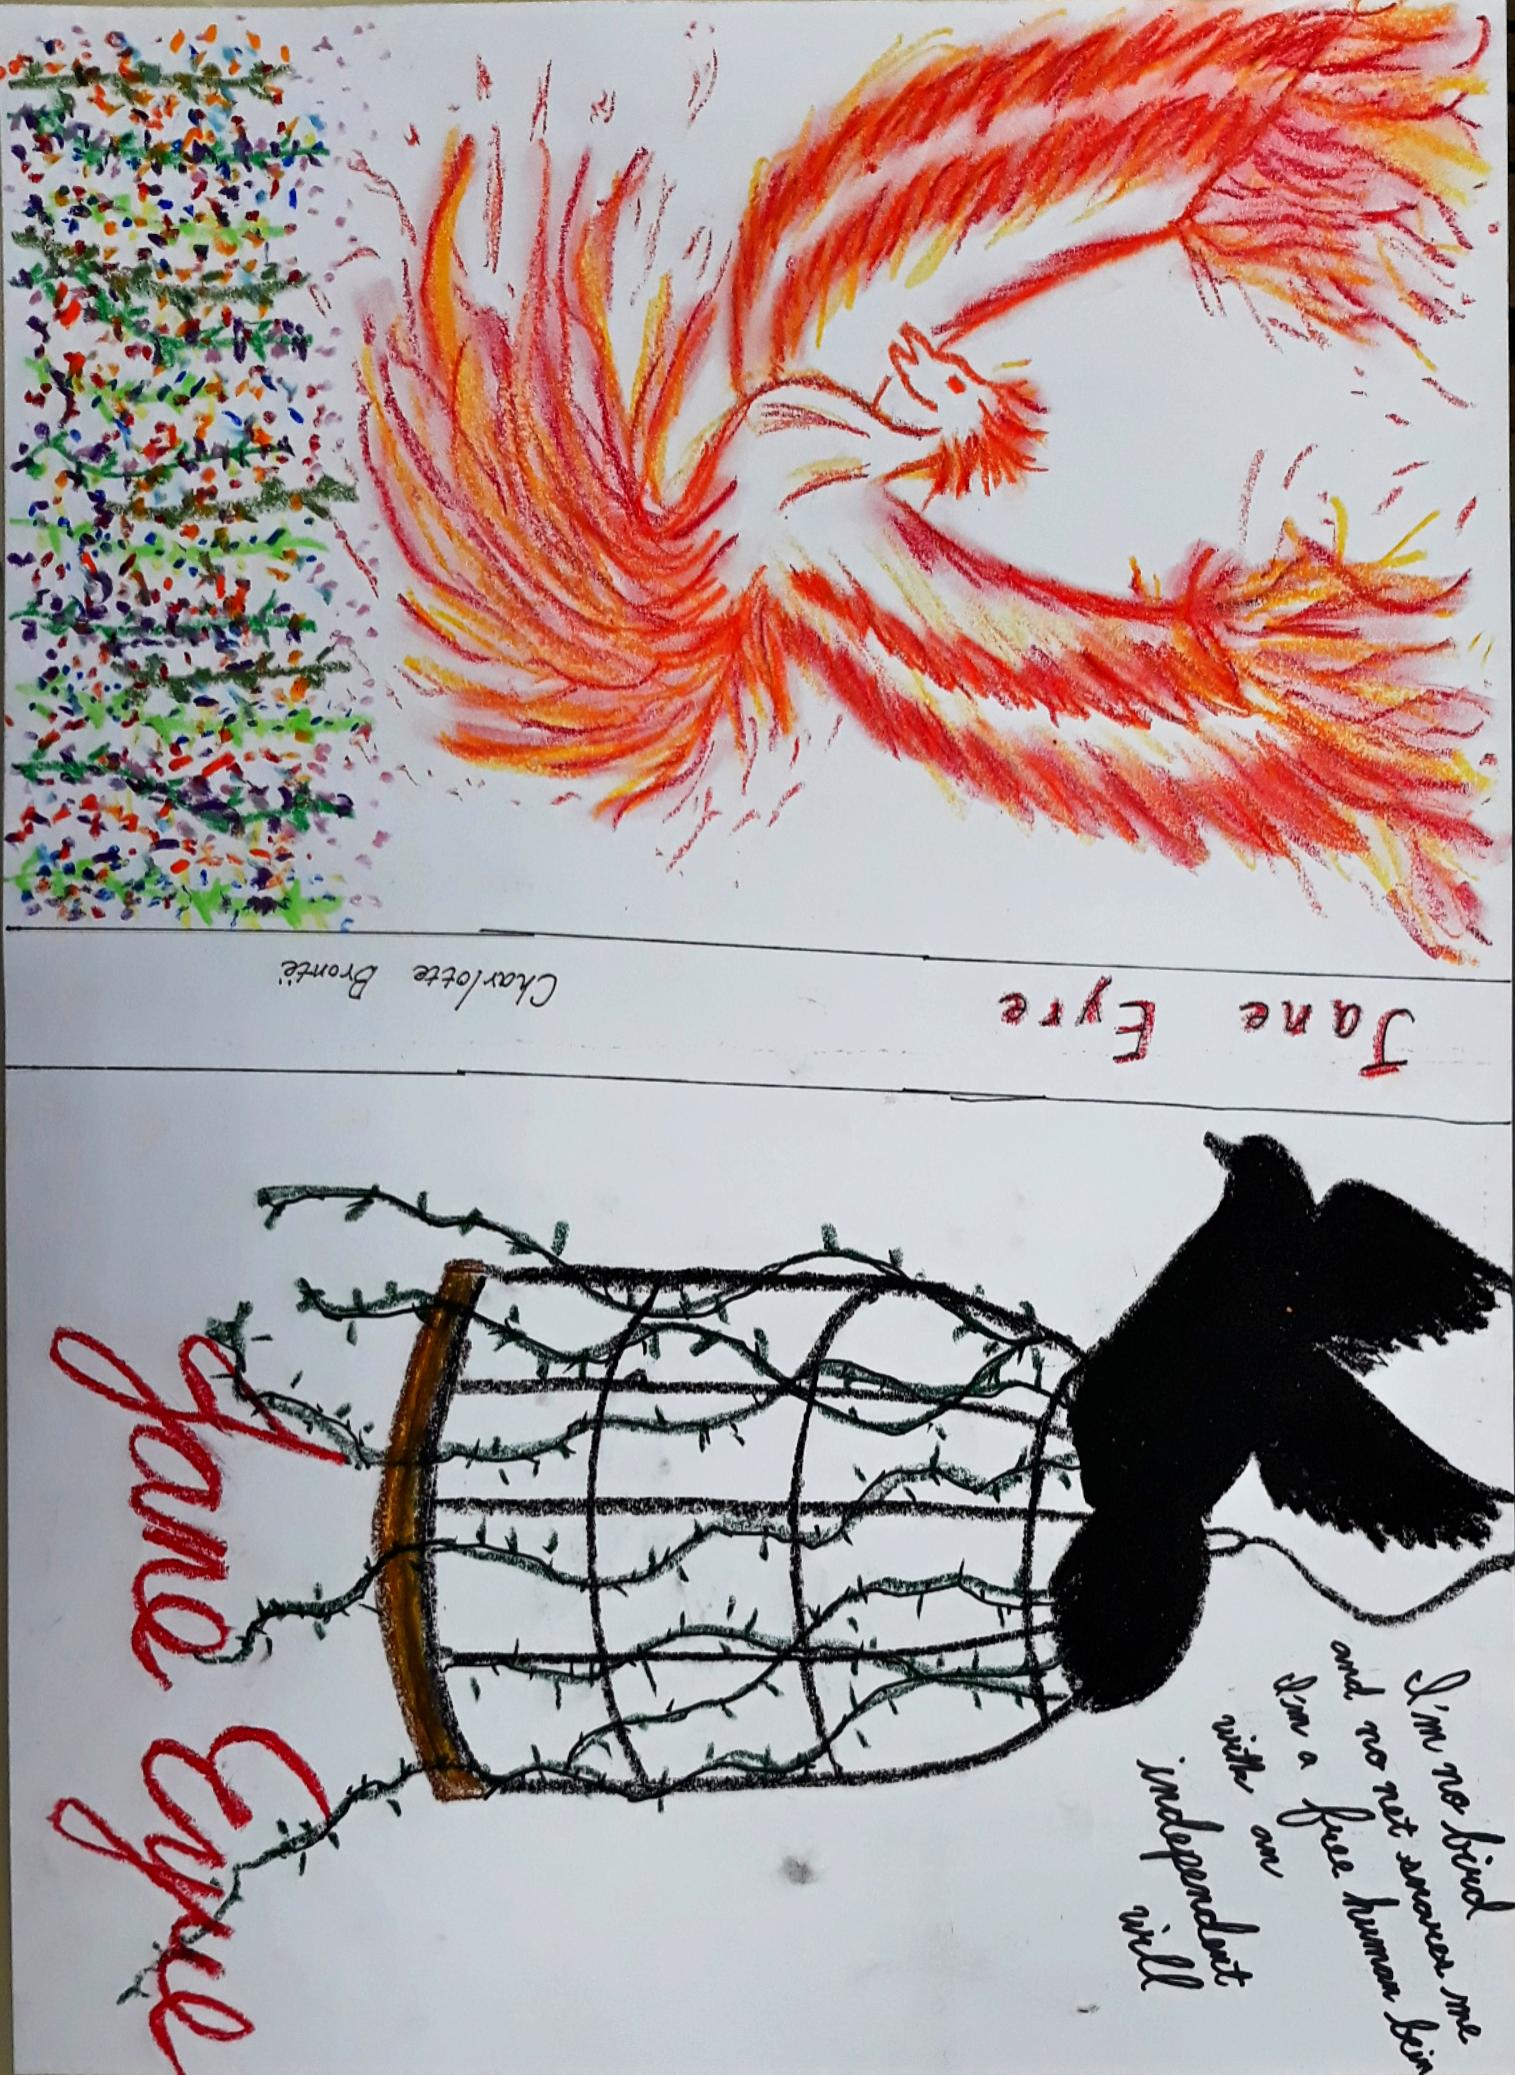 Jane Eyre
Charlotte Brontë
I'm no bird
and no net snares me
I'm a free human bein
with an
independent
will
Jane Eyre